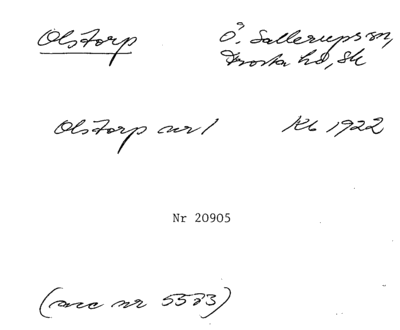 Olstorp Ö. Sallerups sn,
Frosta hd, Sk
Olstorp nr 1 Kb 1922
Nr 20905
(acc nr 5583)